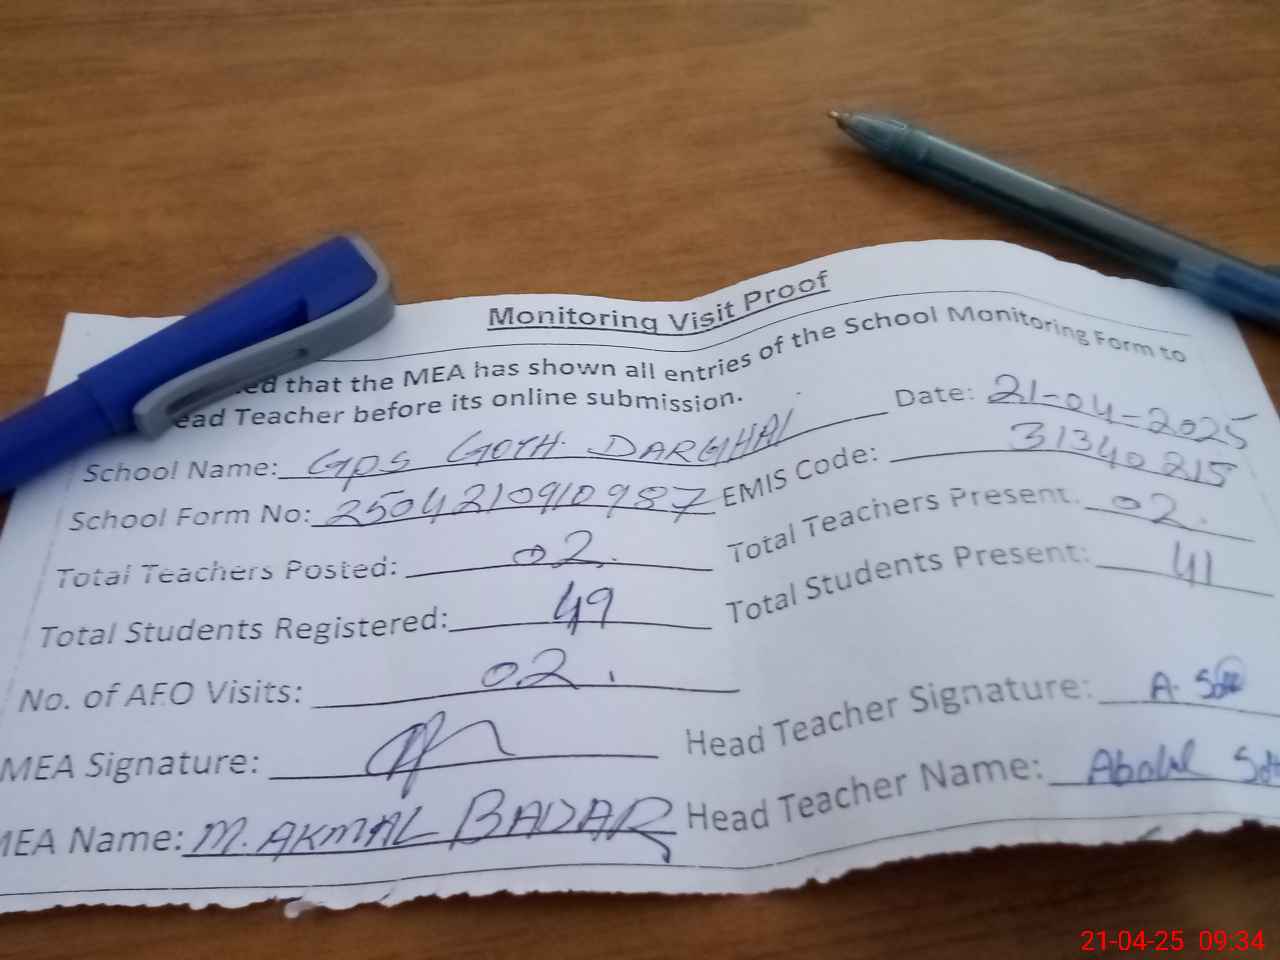 Monitoring Visit Proof
that the MEA has shown all entries of the School Monitoring Form to
ead Teacher before its online submission.
Date: 21-04-2025
School Name: GPS GOTH DARGHAI
EMIS Code: 31340215
School Form No: 2504210910987
Total Teachers Posted: 02.
Total Teachers Present: 02.
Total Students Registered: 49
Total Students Present: 41
No. of AEO Visits: 02.
MEA Signature:
Head Teacher Signature: A.
MEA Name: M. AKMAL BADAR
Head Teacher Name: Abdul
21-04-25 09:34